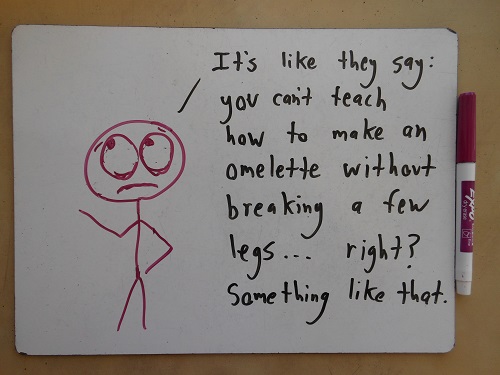 It's like they say:
you can't teach
how to make an
omelette without
breaking a few
legs... right?
Something like that.
EXPO